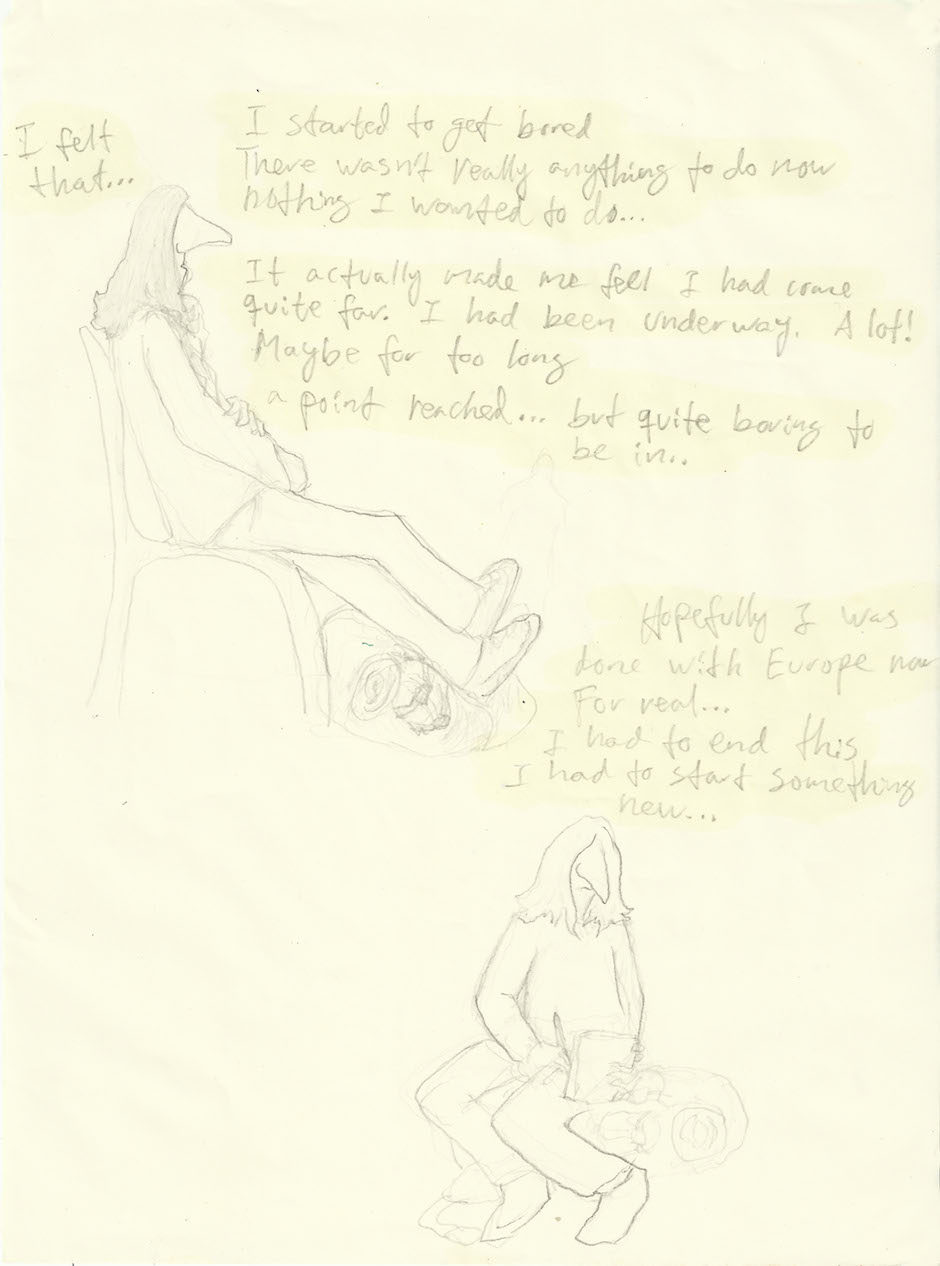 I felt
that...
I started to get bored
There wasn't really anything to do now
nothing I wanted to do...
It actually made me fell I had come
quite far. I had been underway. A lot!
Maybe for too long
a point reached... but quite boring to
be in..
Hopefully I was
done with Europe now
For real...
I had to end this
I had to start something
new...